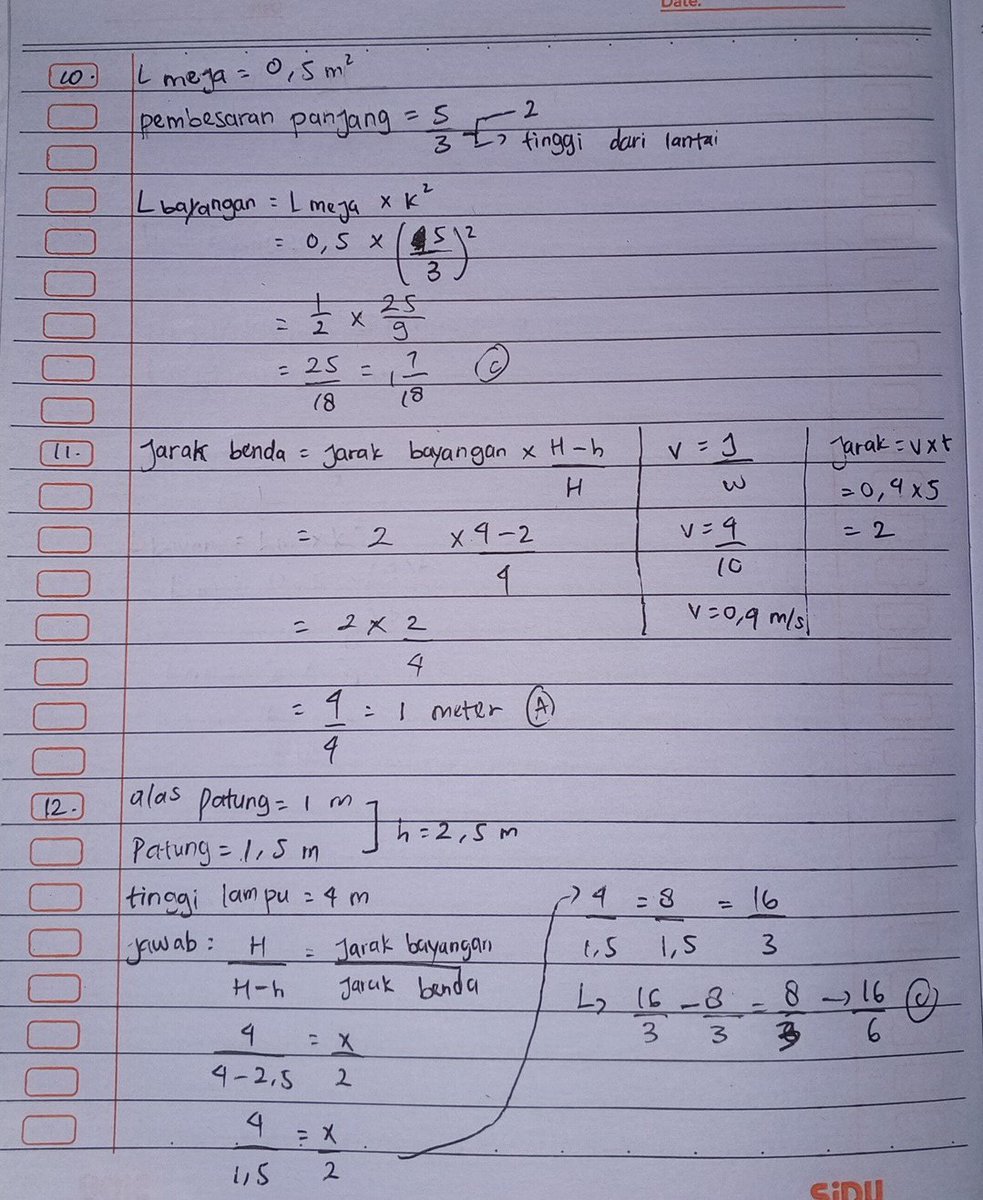 Date:
10. L meja = 0,5 m²
pembesaran panjang = 5/3 → 2
↳ tinggi dari lantai
L bayangan = L meja × k²
= 0,5 × (5/3)²
= 1/2 × 25/9
= 25/18 = 1 7/18 (C)
11. Jarak benda = Jarak bayangan × H-h/H
= 2 × 4-2/4
= 2 × 2/4
= 4/4 = 1 meter (A)
V = J/W
V = 4/10
V = 0,4 m/s
Jarak = v×t
= 0,4 × 5
= 2
12. alas patung = 1 m
Patung = 1,5 m
h = 2,5 m
tinggi lampu = 4 m
jawab : H/H-h = Jarak bayangan/Jarak benda
4/4-2,5 = x/2
4/1,5 = x/2
→ 4/1,5 = 8/1,5 = 16/3
↳ 16/3 - 8/3 = 8/3 → 16/6 (C)
SiDU